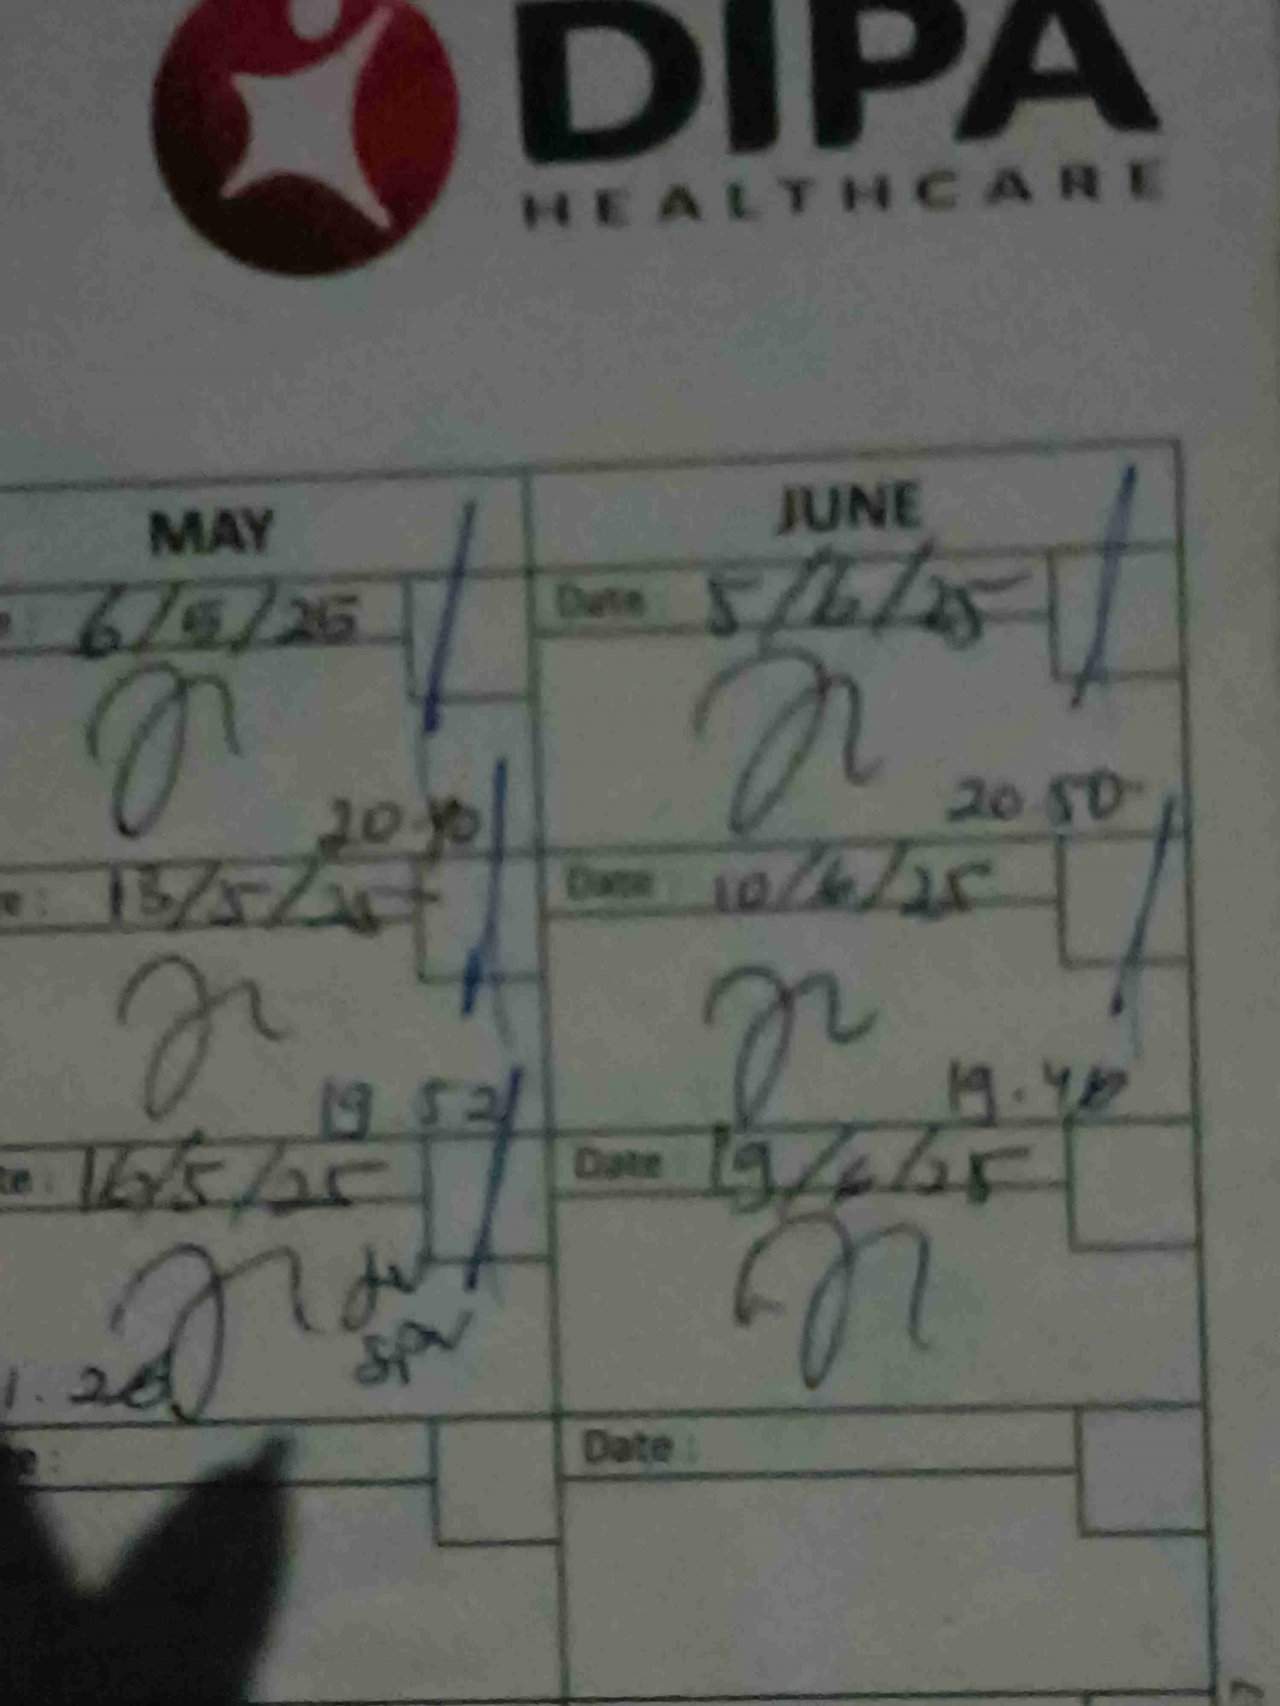 DIPA
HEALTHCARE
MAY
JUNE
6/5/25
Date : 5/6/25
20.50
13/5/25
Date : 10/6/25
19.52
19.40
16/5/25
Date : 19/6/25
Date :